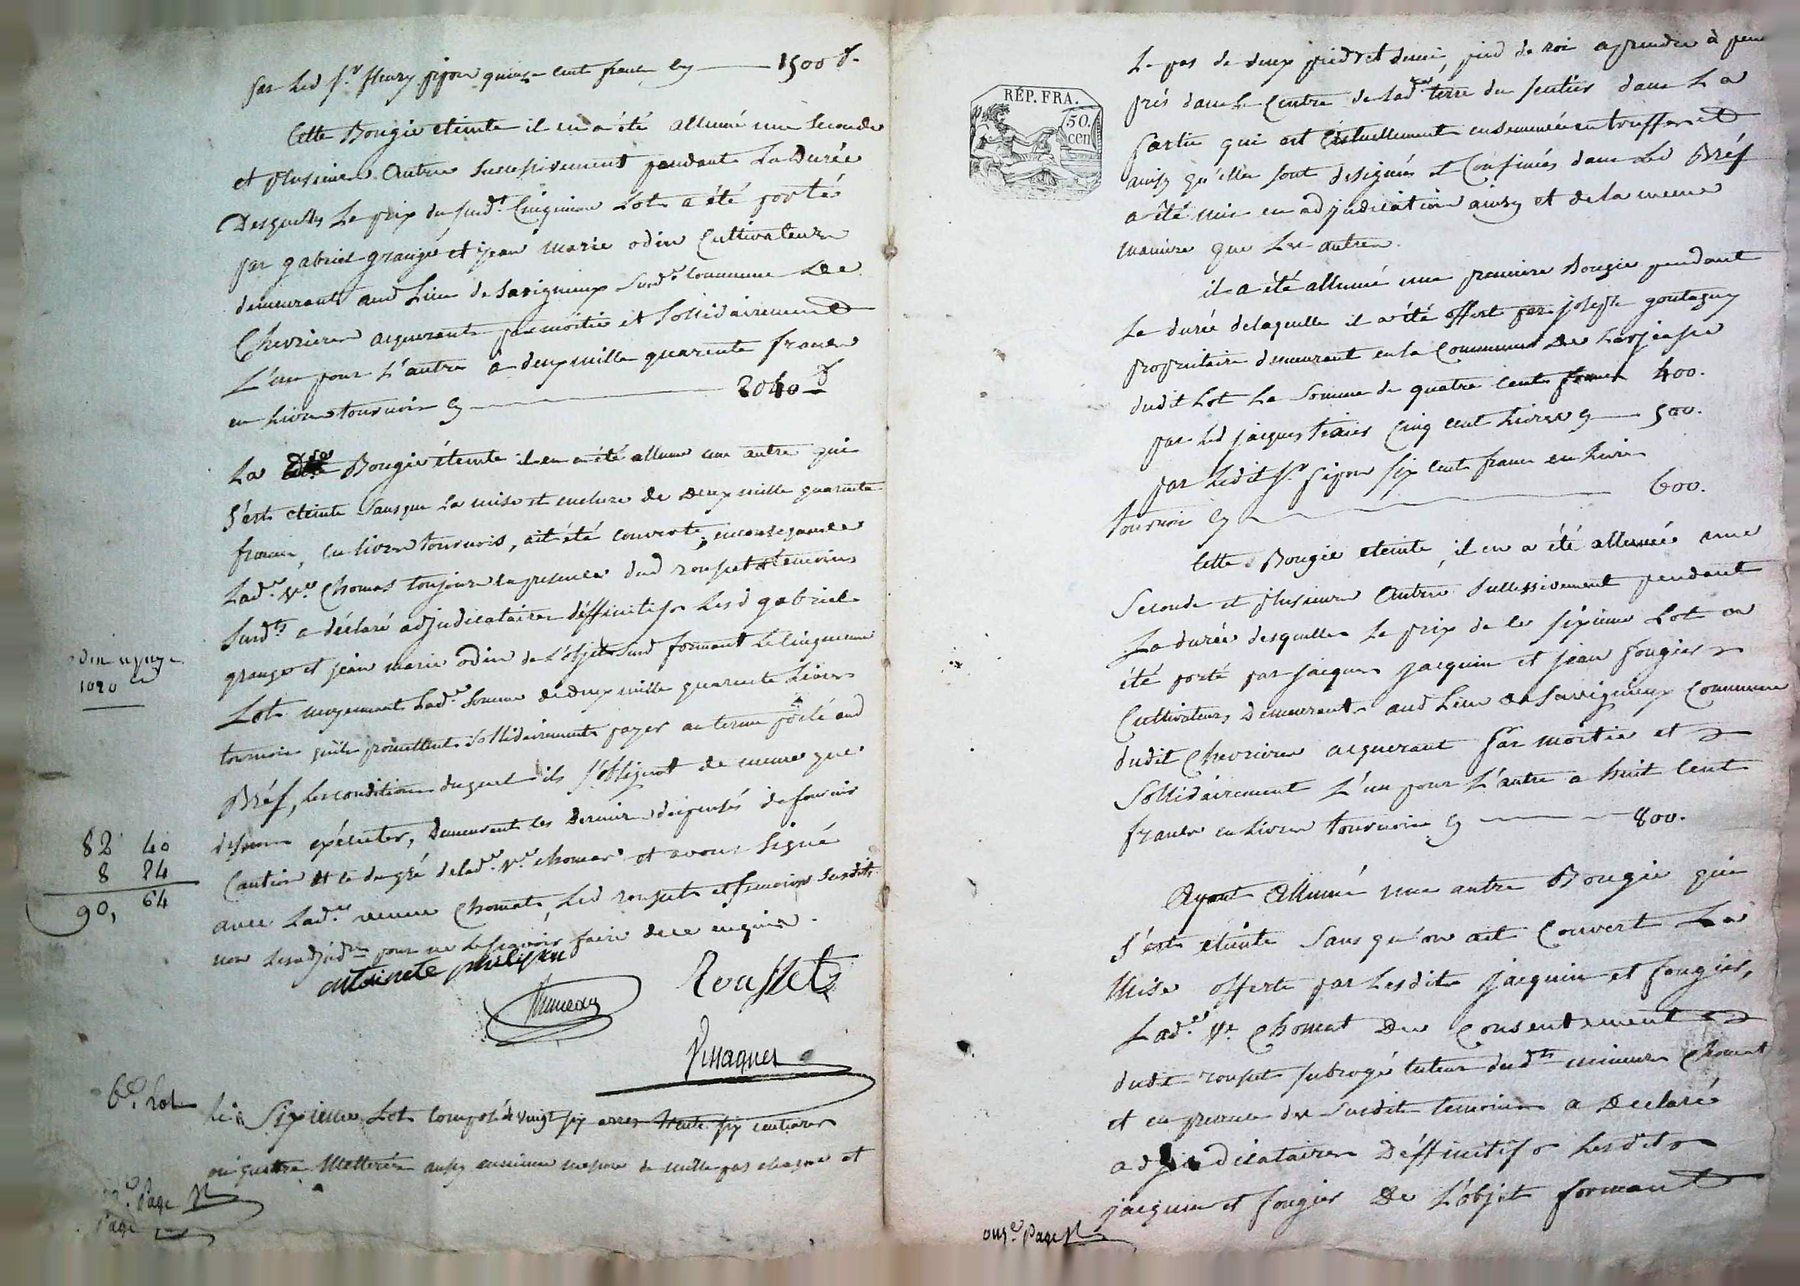 par led Sr fleury pijon quinze cent franc cy — 1500 f.
Cette Bougie eteinte il en a été allumé une seconde
et plusieurs autres successivement pendant la durée
Desquelles Le prix du susdt Cinquieme Lot a été porté
par gabriel grange et jean marie odin Cultivateurs
demeurants aud Lieu de Savigneux susde Commune De
Chevrieres acquerants par moitié et Sollidairement
L'un pour L'autre à deux mille quarente francs
en Livres tournois cy — 2040 f
La Bougie éteinte il en a été allumé une autre qui
s'est eteinte sans que La mise et enchere de Deux mille quarente
francs, en livres tournois, ait été couverte, en consequence
Lade Ve Chomat toujours en presence dud rousset et temoins
susdts a déclaré adjudicataires déffinitifs Lesd gabriel
grange et jean marie odin de L'objet susd formant Le Cinquieme
Lot moyennant Lade Somme de deux mille quarente Livres
tournois qu'ils promettent sollidairement payer au terme porté aud
Bréf, les conditions duquel ils s'obligent de meme que
dessus exécuter, Demeurants les Derniers dispensés de fournir
Caution et ce du gré de lade Ve chomat et avons Signé
avec Lade veuve Chomat, Led rousset et temoins susdits
non Lesd adjdres pour ne le savoir faire de ce enquis.
odin a payé
1020
82 40
8 24
90, 64
antoinete philipon
Rousset
6e. Lot
Le Sixieme Lot composé de vingt six arres trente six centiares
ou quatre Metterées aussi ancienne mesure de mille pas chaque et
Page
Page
RÉP. FRA.
50.
cen
Le pas de deux pieds et demi, pied de roi a prendre à peu
prés dans le Centre de lade terre du sentier dans La
partie qui est actuellement ensemencée en trufferes et
ainsy qu'elles sont designées et Confinées dans Led Bréf
a été mis en adjudication ainsy et de la meme
maniere que Les autres.
il a été allumé une premiere Bougie pendant
La durée delaquelle il a été offert par joseph goutagny
propriétaire demeurant en la Commune De Larajasse
dudit Lot La Somme de quatre cents francs 400.
par Led jacques Cinq cent Livres cy — 500.
par Ledit Sr pijon six cent francs en Livres
tournois cy — 600.
Cette Bougie eteinte, il en a été allumée une
Seconde et plusieurs autres successivement pendant
La durée desquelles Le prix de ce sixieme Lot a
été porté par jacques jacquin et jean fougier
Cultivateurs Demeurants aud Lieu de Savigneux Commune
dudit Chevrieres acquerant par moitié et
Sollidairement L'un pour L'autre a huit cent
francs en Livres tournois cy — 800.
Ayant allumé une autre Bougie qui
s'est eteinte sans qu'on ait Couvert La
Mise offerte par Lesdits jacquin et fougier,
Lade Ve Chomat Du Consentement
dudt rousset subrogé tuteur dudts mineurs Chomat
et en presence des susdits temoins a Déclaré
adjudicataires Déffinitifs Lesdits
jacquin et fougier De L'objet formant
onze Page